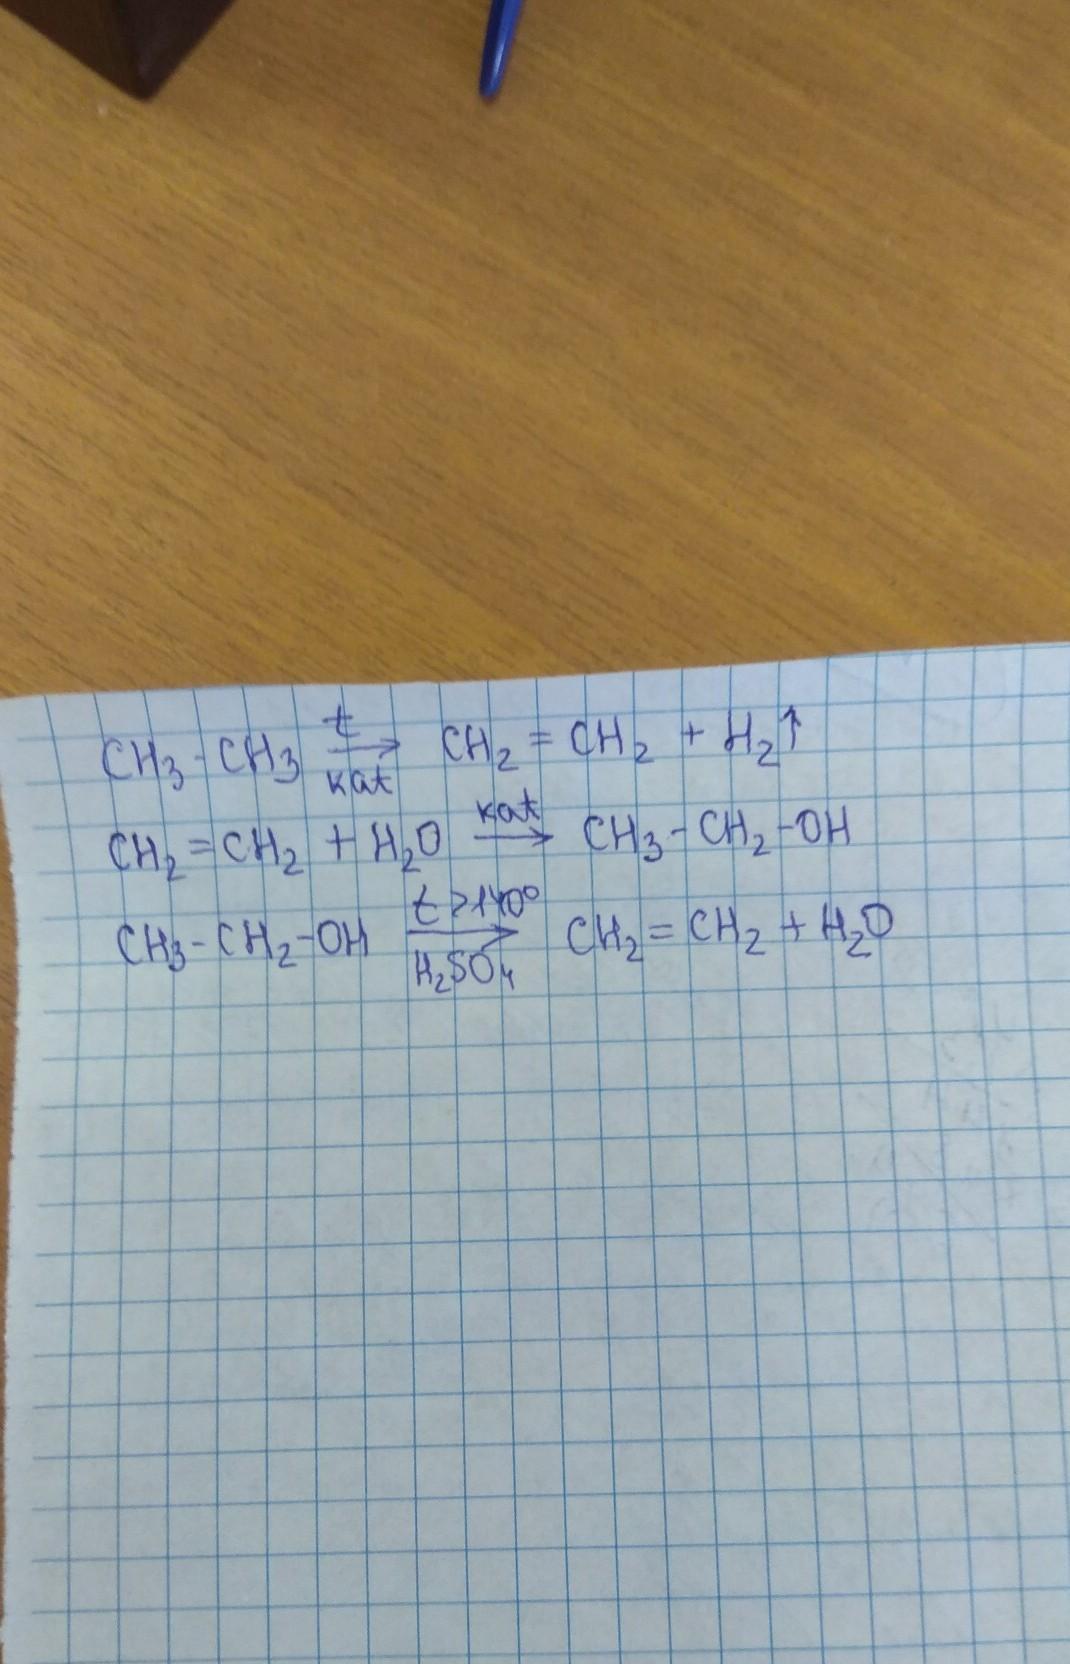 CH₃-CH₃ t→kat CH₂=CH₂ + H₂↑
CH₂=CH₂ + H₂O kat→ CH₃-CH₂-OH
CH₃-CH₂-OH t>140°→H₂SO₄ CH₂=CH₂ + H₂O